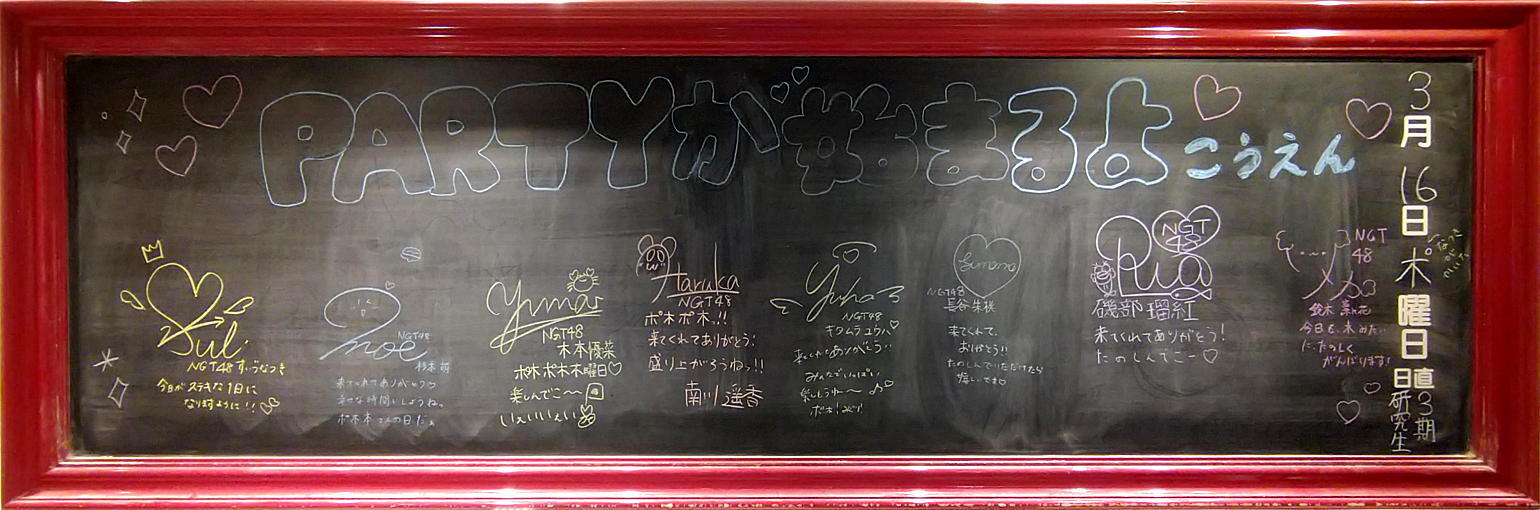 PARTYが始まるよ こうえん
3月16日木曜日
直3期
日研究生
Sul.
NGT48 ずぅうなつき
今日がステキな1日に
なりますように!!
moe
NGT48
杉本 萌
来てくれてありがとう♡
幸せな時間にしようね。
ポポ木さんの日だぁ
yuma
NGT48
木本優菜
ポポポポ木木曜日♡
楽しんでこ〜
いぇいいぇい
Haruka
NGT48
ポ木ポ木!!
来てくれてありがとう!
盛り上がろうねっ!!
南川 遥香
yuho
NGT48
キタムラユウハ♡
来てくれてありがとう!!
みんなでいっぱい
楽しもうね〜♪
simono
NGT48
長谷朱槻
来てくれて、
ありがとう!!
たのしんでいただけたら
嬉しいです♡
NGT
48
Rua
磯部 瑠紅
来てくれてありがとう!
たのしんでこー♡
NGT
48
鈴木 茉莉花
今日も、木みたい
に、たのしく
がんばります!